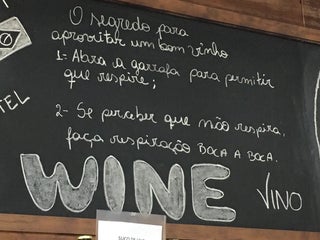 O segredo para
aproveitar um bom vinho
1- Abra a garrafa para permitir
que respire;
2- Se perceber que não respira,
faça respiração BOCA A BOCA.
TEL
WINE
VINO